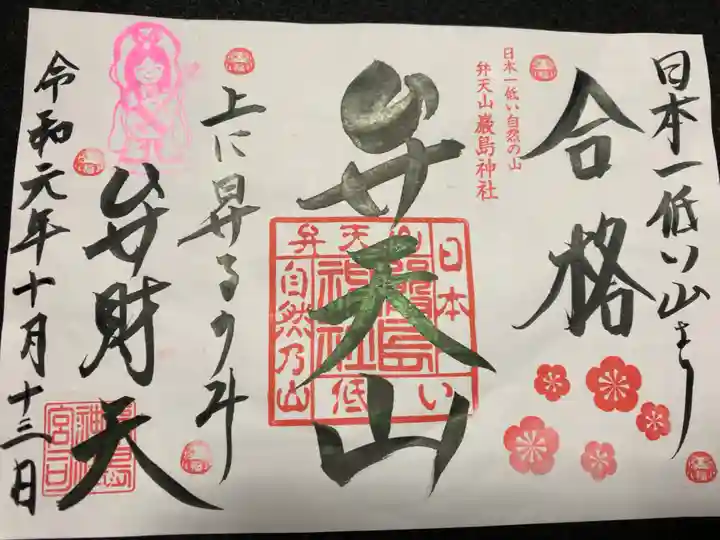 日本一低い山より
合格
日本一低い自然の山
弁天山 厳島神社
弁天山
日本一低い
弁天山
厳島神社
自然乃山
上に昇るのみ
弁財天
令和元年十月十三日